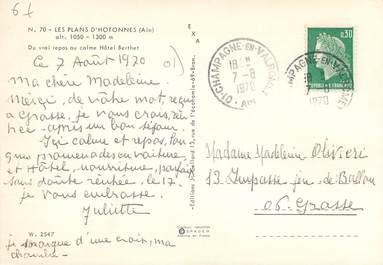 6f
N. 70 - LES PLANS D'HOTONNES (Ain)
alt. 1050 - 1300 m
Du vrai repos au calme Hôtel Berthet
Le 7 Août 1970
01)
ma chère Madeleine.
Merci, de vôtre mot, reçu
à Grasse, je vous crois, ren
trée - après un bon séjour.
Ici calme et repos, fon
que promenades en voiture,
et Hôtel, nourriture, parfaits
sans doute rentrée, le 17.
je vous embrasse.
Juliette
W. 2547
je marque d'une croix, ma
chambre -
EXA
SPADEM
01 CHAMPAGNE-EN-VALROMEY
18 H
7-8
1970
AIN
CHAMPAGNE-EN-VALROMEY
18 H
7-8
1970
0,30
Madame Madeleine Olivieri
13 Impasse jeu de Ballon
06. Grasse